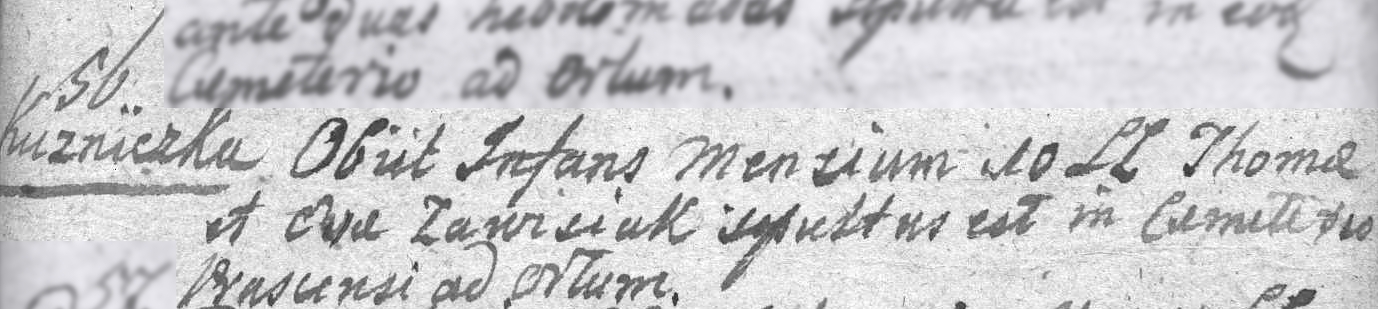 ante duas hebdomadas sepultus est in eod
Cemeterio ad Ortum.
56.
Kuzniczka Obiit Infans Mensium 10 LL Thomæ
et Evæ Zawisiak sepultus est in Cemeterio
Prascensi ad Ortum.
57